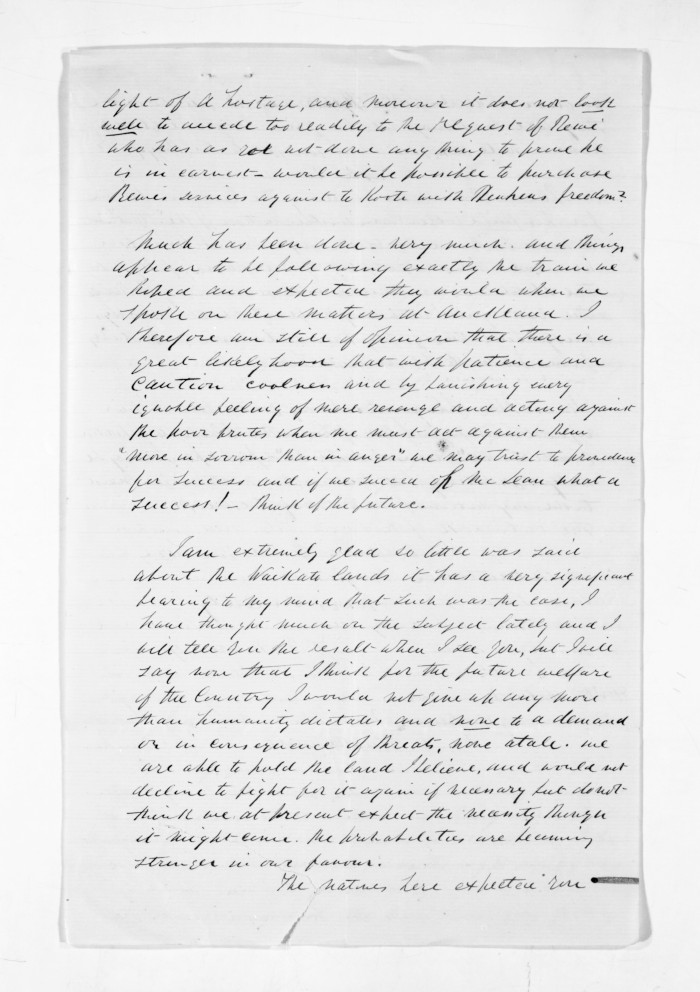 light of a hostage, and moreover it does not look
well to accede too readily to the request of Rewi
who has as yet not done anything to prove he
is in earnest – would it be possible to purchase
Rewies services against te Kooti with Reuhens freedom?
Much has been done – very much. and things
appear to be following exactly the train we
hoped and expected they would when we
spoke on these matters at Auckland. I
therefore am still of opinion that there is a
great likelyhood that with patience and
caution coolness and by banishing every
ignoble feeling of mere revenge and acting against
the poor brutes when we must act against them
"more in sorrow than in anger" we may trust to providence
for success and if we succeed of the dean what a
success! – think of the future.
I am extremely glad so little was said
about the Waikato lands it has a very significant
bearing to my mind that such was the case, I
have thought much on the subject lately and I
will tell you the result when I see you, but I will
say now that I think for the future welfare
of the Country I would not give up any more
than humanity dictates and none to a demand
or in consequence of threats, none atale. we
are able to hold the land I believe, and would not
decline to fight for it again if necessary but do not
think we at present expect the necessity though
it might come. the probabilities are becoming
stronger in our favour.
The natives here expected you